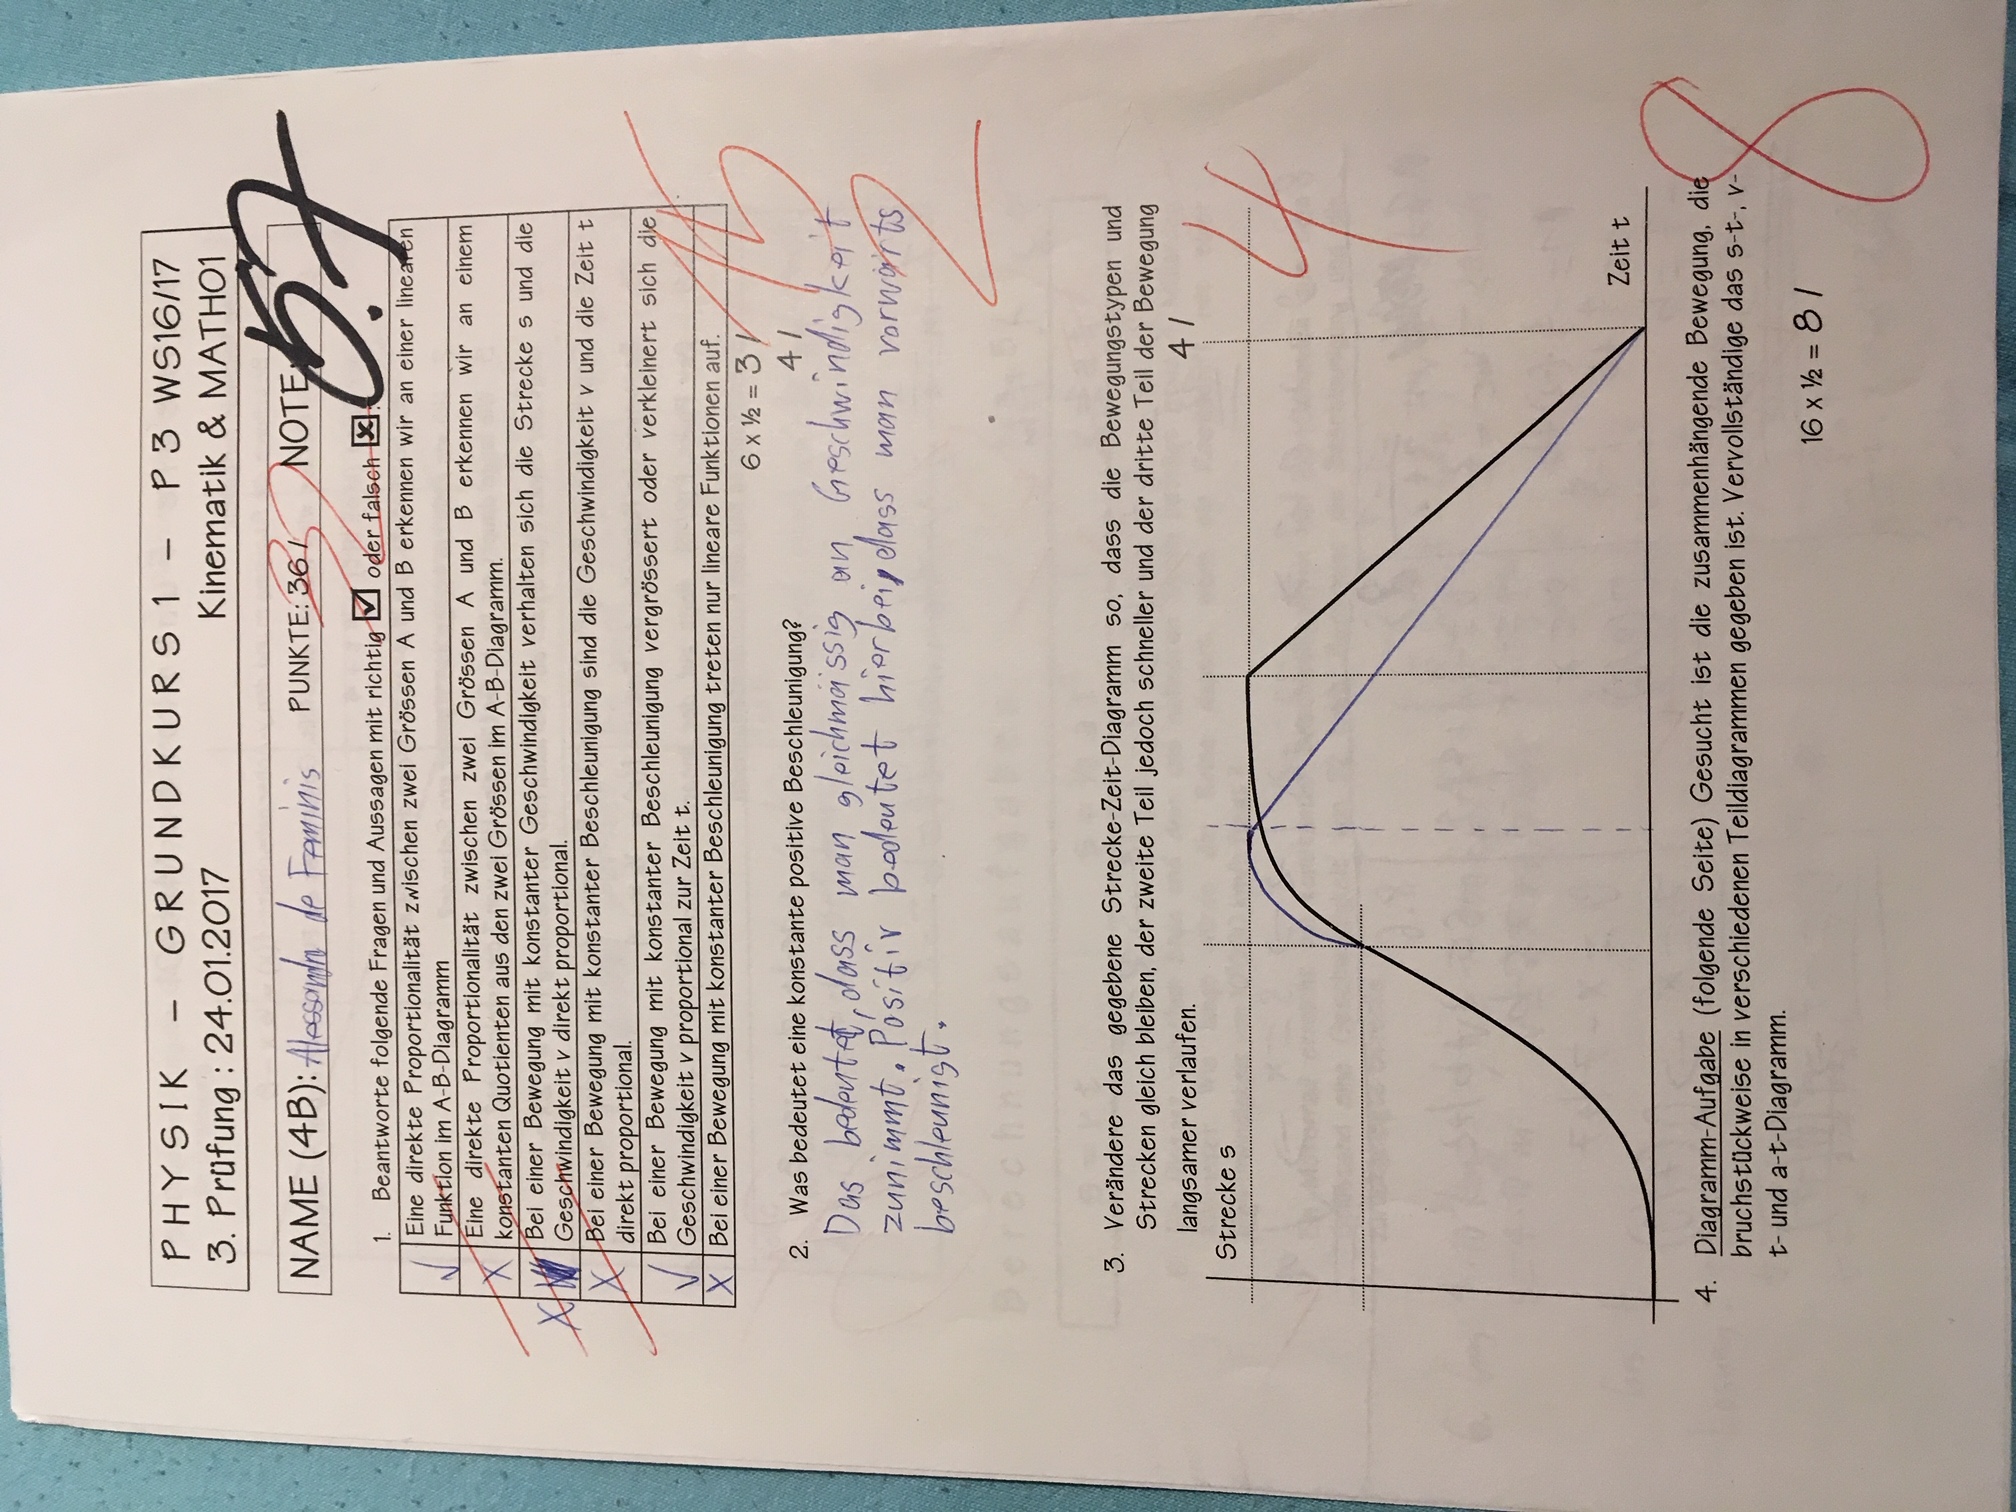 PHYSIK – GRUNDKURS 1 – P3 WS16/17
3. Prüfung : 24.01.2017 Kinematik & MATH01
NAME (4B): Alessandro de Feminis PUNKTE: 36 / 32 NOTE: 5.7
1. Beantworte folgende Fragen und Aussagen mit richtig ☑ oder falsch ☒.
✓ Eine direkte Proportionalität zwischen zwei Grössen A und B erkennen wir an einer linearen
Funktion im A-B-Diagramm
X Eine direkte Proportionalität zwischen zwei Grössen A und B erkennen wir an einem
konstanten Quotienten aus den zwei Grössen im A-B-Diagramm.
X Bei einer Bewegung mit konstanter Geschwindigkeit verhalten sich die Strecke s und die
Geschwindigkeit v direkt proportional.
X Bei einer Bewegung mit konstanter Beschleunigung sind die Geschwindigkeit v und die Zeit t
direkt proportional.
✓ Bei einer Bewegung mit konstanter Beschleunigung vergrössert oder verkleinert sich die
Geschwindigkeit v proportional zur Zeit t.
X Bei einer Bewegung mit konstanter Beschleunigung treten nur lineare Funktionen auf.
6 x ½ = 3 / 15
2. Was bedeutet eine konstante positive Beschleunigung? 4 /
Das bedeutet, dass man gleichmässig an Geschwindigkeit
zunimmt. Positiv bedeutet hierbei, dass man vorwärts
beschleunigt.
2
3. Verändere das gegebene Strecke-Zeit-Diagramm so, dass die Bewegungstypen und
Strecken gleich bleiben, der zweite Teil jedoch schneller und der dritte Teil der Bewegung
langsamer verlaufen. 4 /
4
Strecke s
Zeit t
4. Diagramm-Aufgabe (folgende Seite) Gesucht ist die zusammenhängende Bewegung, die
bruchstückweise in verschiedenen Teildiagrammen gegeben ist. Vervollständige das s-t-, v-
t- und a-t-Diagramm.
16 x ½ = 8 / 8